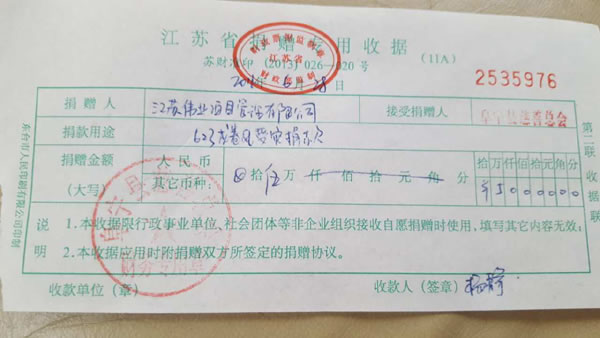 江苏省捐赠专用收据 (11A)
苏财准印 (2013) 026—020 号
财政票据监制章
江苏省
财政部监制
2016 6 28日
2535976
捐赠人 江苏伟业项目管理有限公司 接受捐赠人 阜宁县慈善总会
捐款用途 623龙卷风受灾捐示
捐赠金额 (大写) 人民币 其它币种: 拾伍万仟佰拾元角分 拾万仟佰拾元角分
¥5000000
说明 1.本收据限行政事业单位,社会团体等非企业组织接收自愿捐赠时使用,填写其它内容无效;
2.本收据应用时附捐赠双方所签定的捐赠协议。
收款单位(章) 收款人(签章)
阜宁县
财务专用章
东台市人民印刷有限公司印制
第二联 收据联